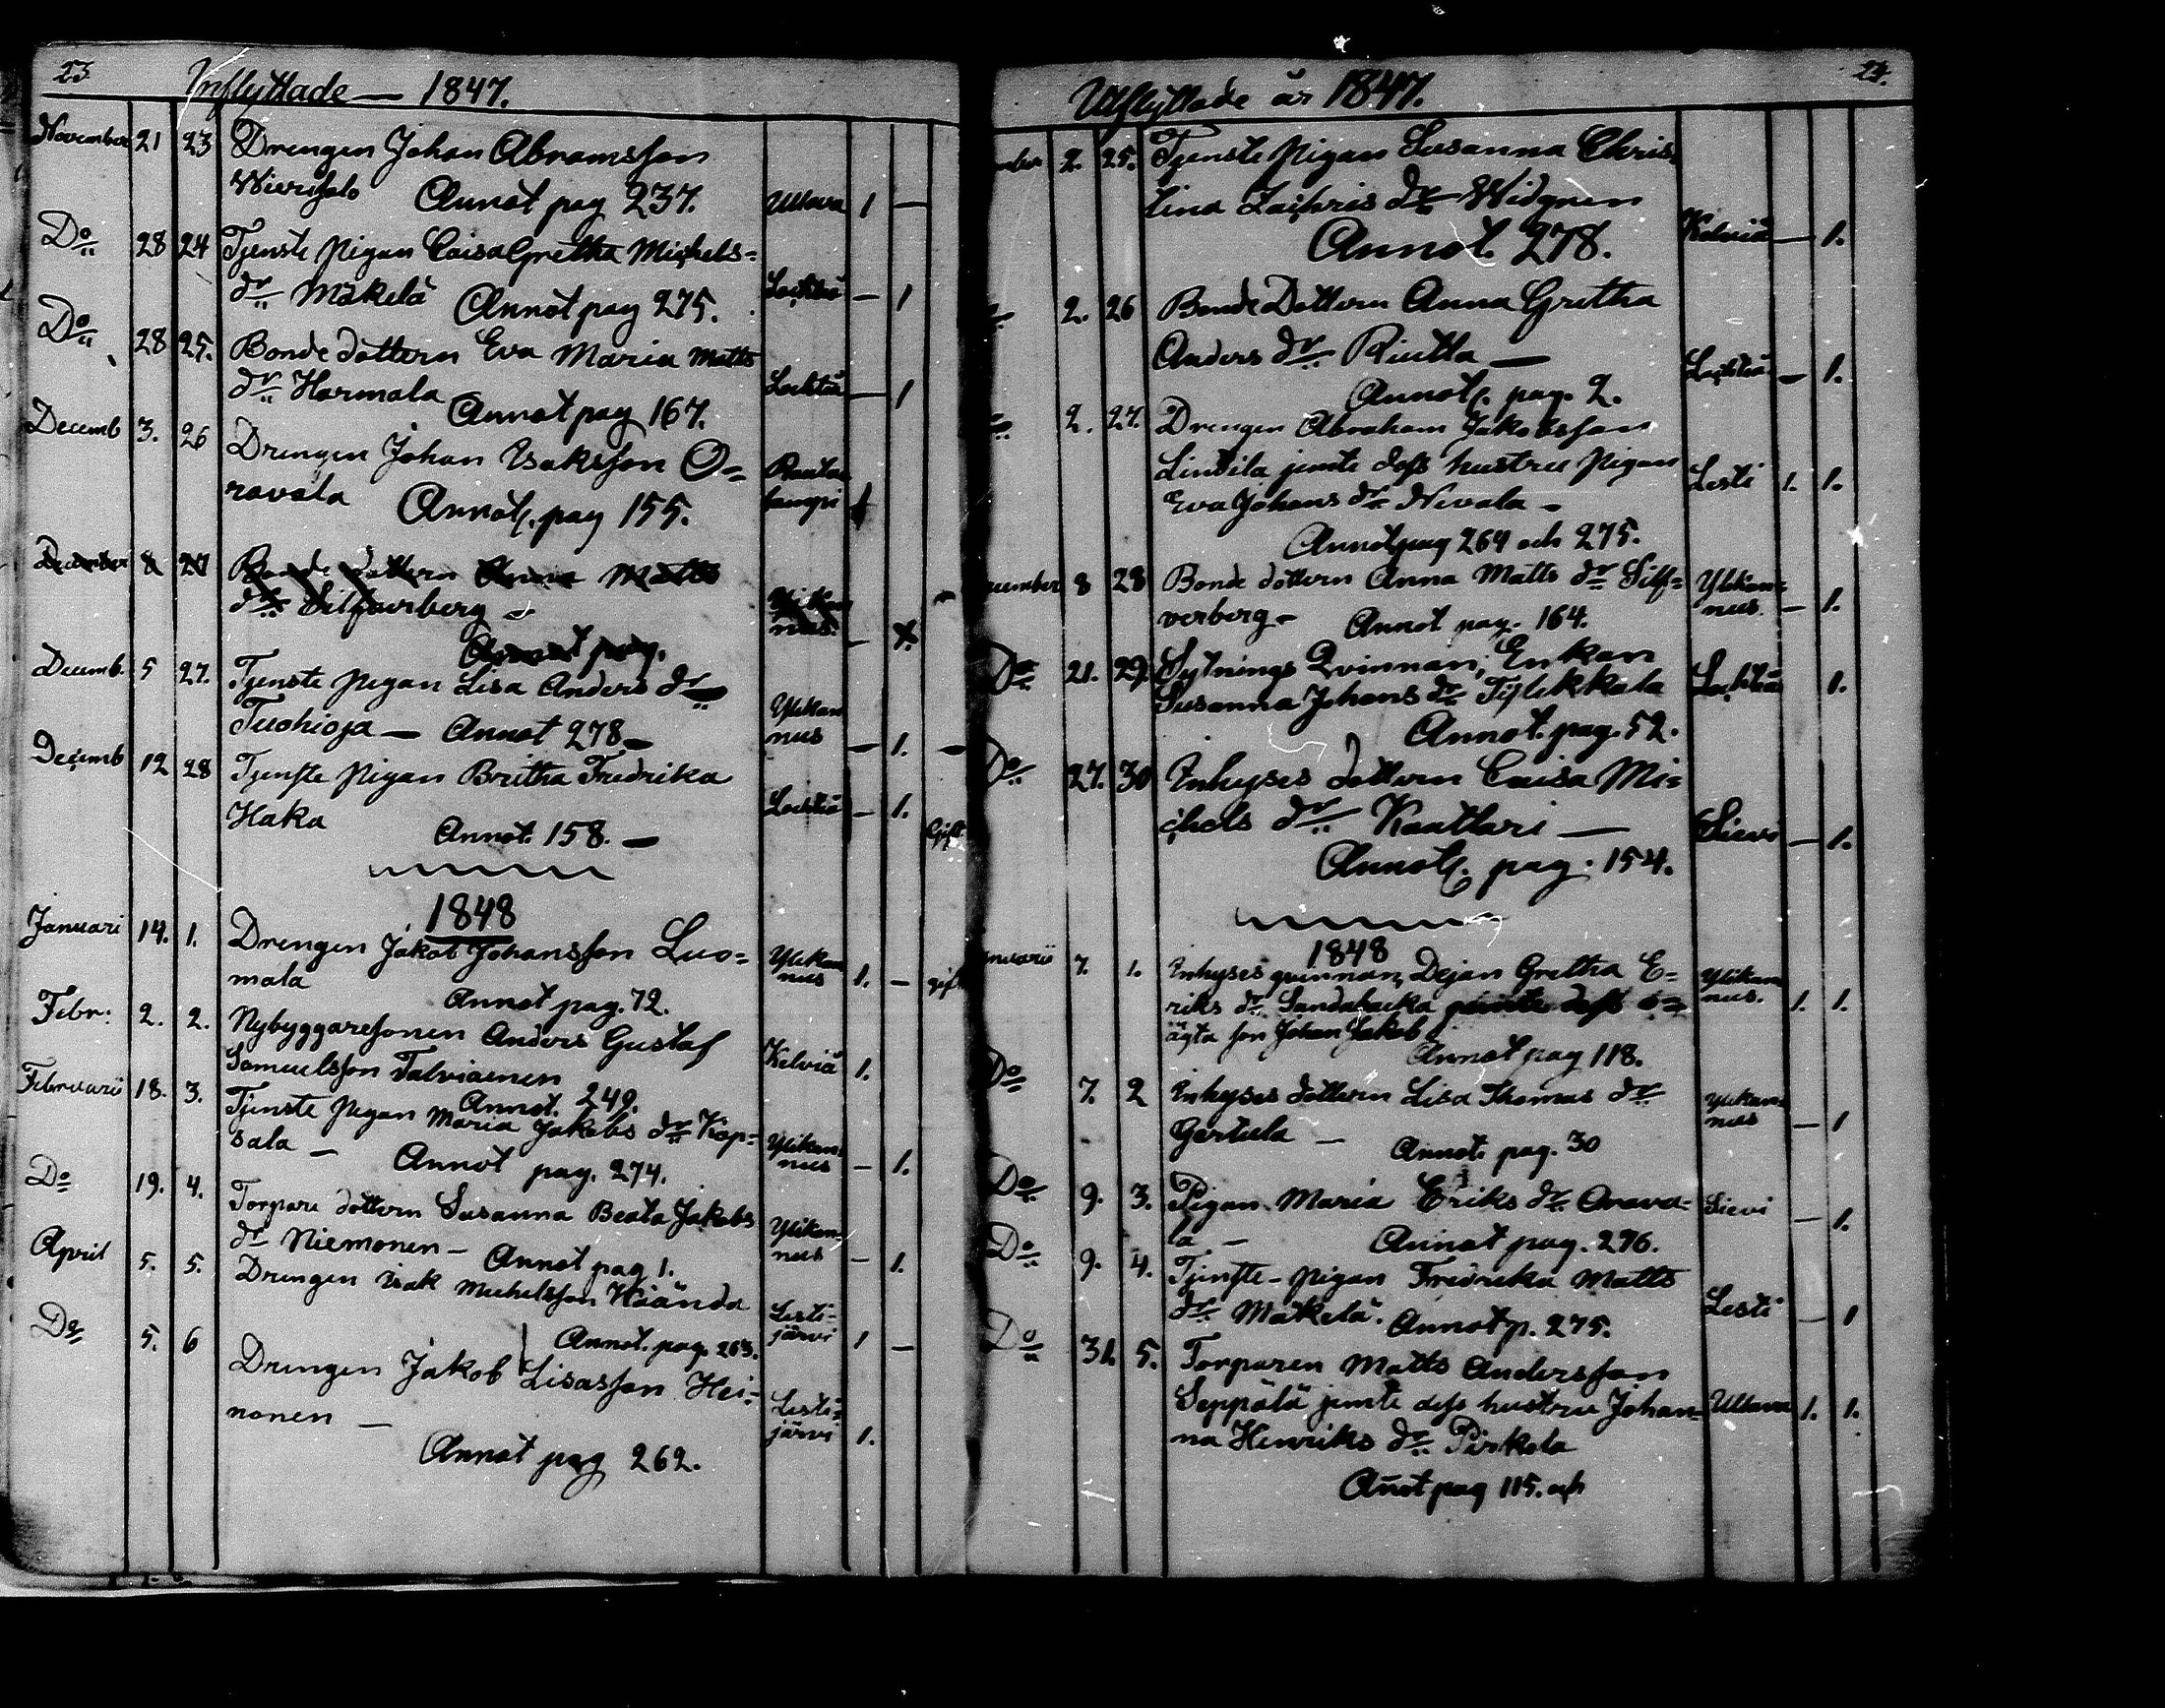 23.
Inflyttade — 1847.
November 21 23 Drengen Johan Abramsson
Wiersalo Annot pag 237. Ullava 1 —
Do 28 24 Tjenste pigan Caisa Gretha Michels-
dr Mäkelä Annot pag 275. Lochteå — 1
Do 28 25. Bonde dottern Eva Maria Matts
dr Harmala Annot pag 167. Lochteå — 1
Decemb 3. 26 Drengen Johan Isaksson O=
ravala Annot. pag 155. Rautalampi 1
December 8 27 Bonde dottern Anna Matts
dr Silfverberg - Ylikannus. — 1.
Annot pag.
Decemb. 5 27. Tjenste pigan Lisa Anders dr
Tuohioja — Annot 278 — Ylikannus — 1. —
Decemb 12 28 Tjenste pigan Britha Fredrika
Haka Annot. 158. — Lochteå — 1. Gift
1848
Januari 14. 1. Drengen Jakob Johansson Luo=
mala Annot pag. 72. Ylikannus 1. — gift
Febr. 2. 2. Nybyggaresonen Anders Gustaf
Samuelsson Talviaenen Kelviå 1.
Annot. 249.
Februarii 18. 3. Tjenste pigan Maria Jakobs dr Kop=
sala — Annot pag. 274. Ylikannus — 1.
Do 19. 4. Torpare dottern Susanna Beata Jakobs
dr Niemonen — Annot pag 1. Ylikannus — 1.
April 5. 5. Drengen Isak Michelsson Wäändä
Annot. pag. 263. Lestijärvi 1 —
Do 5. 6 Drengen Jakob Lisasson Hei-
nonen — Lestijärvi 1.
Annot pag 262.
24.
Utflyttade år 1847.
mber 2. 25. Tjenste pigan Susanna Chris
tina Zachris dr Widgren Kelviå — 1.
Annot. 278.
2. 26 Bonde Dottern Anna Gretha
Anders dr Riutta — Lochteå — 1.
Annot. pag. 2.
2. 27. Drengen Abraham Jakobsson
Lintila jemte dess hustru pigan Lesti 1. 1.
Eva Johans dr Nevala -
Annot pag 264 och 275.
cember 8 28 Bonde dottern Anna Matts dr Silf= Ylikan=
verberg - Annot pag. 164. nus. — 1.
Do 21. 29 Sytnings Qvinnan, Enkan
Susanna Johans dr Tylikkala Lochteå 1.
Annot. pag. 52.
Do 27. 30 Inhyses dottern Caisa Mi=
chels dr Kaattari — Sievi — 1.
Annot. pag. 154.
1848
nuarii 7. 1. Inhyses qvinnan, Dejan Gretha E= Ylikan
riks dr Sandbacka jemte dess o= nus. 1. 1.
ägta son Johan Jakob
Annot pag 118.
Do 7. 2 Inhyses dottern Lisa Thomas dr Ylikan=
Gertula — Annot. pag. 30 nus — 1
Do 9. 3. Pigan Maria Eriks dr Orava= Sievi — 1.
la — Annot pag. 276.
Do 9. 4. Tjenste-pigan Fredrika Matts
dr Mäkelä. Annot p. 275. Lesti — 1
Do 31. 5. Torparen Matts Andersson
Seppälä jemte dess hustru Johan= Ullava 1. 1.
na Henriks dr Pirkola
Anot pag 115. och